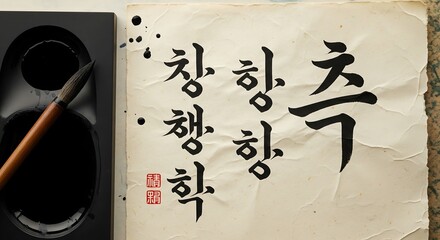 측
항항
창행학